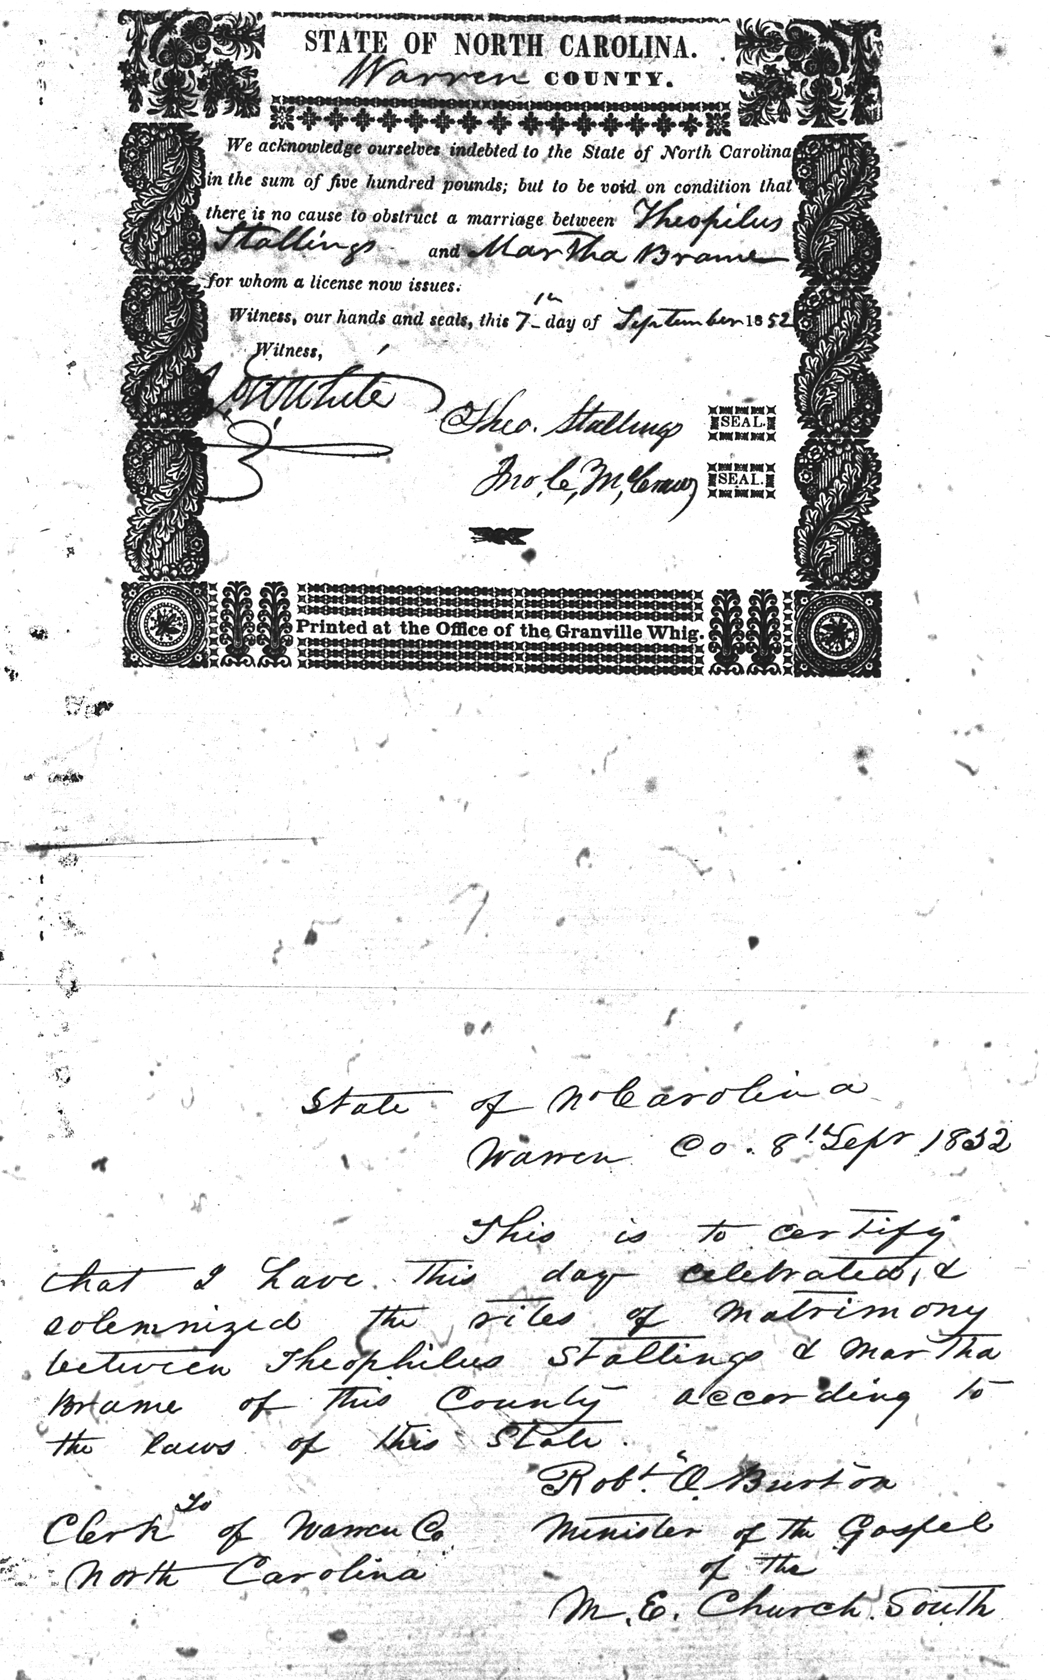 STATE OF NORTH CAROLINA.
Warren COUNTY.
We acknowledge ourselves indebted to the State of North Carolina
in the sum of five hundred pounds; but to be void on condition that
there is no cause to obstruct a marriage between Theopilus
Stallings and Martha Brame
for whom a license now issues.
Witness, our hands and seals, this 7th day of September 1852
Witness,
White
Theo. Stallings SEAL.
Jno. C. McCraw SEAL.
Printed at the Office of the Granville Whig.
State of No Carolina
Warren Co. 8th Sepr 1852
This is to certify
that I have this day celebrated, &
solemnized the rites of matrimony
between Theophilus Stallings & Martha
Brame of this County according to
the laws of this State.
Robt. O. Burton
To
Clerk of Warren Co. Minister of the Gospel
North Carolina of the
M. E. Church. South